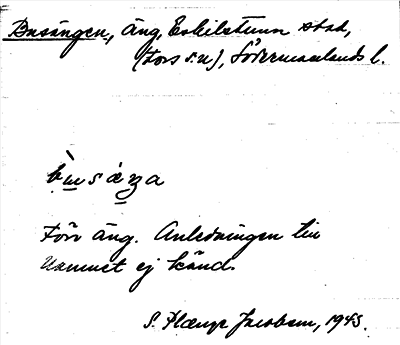 Busängen, äng, Eskilstuna stad,
(Fors sn), Södermanlands l.
bu̱sàṉa
Förr äng. Anledningen till
namnet ej känd.
S. Plænge Jacobson, 1943.